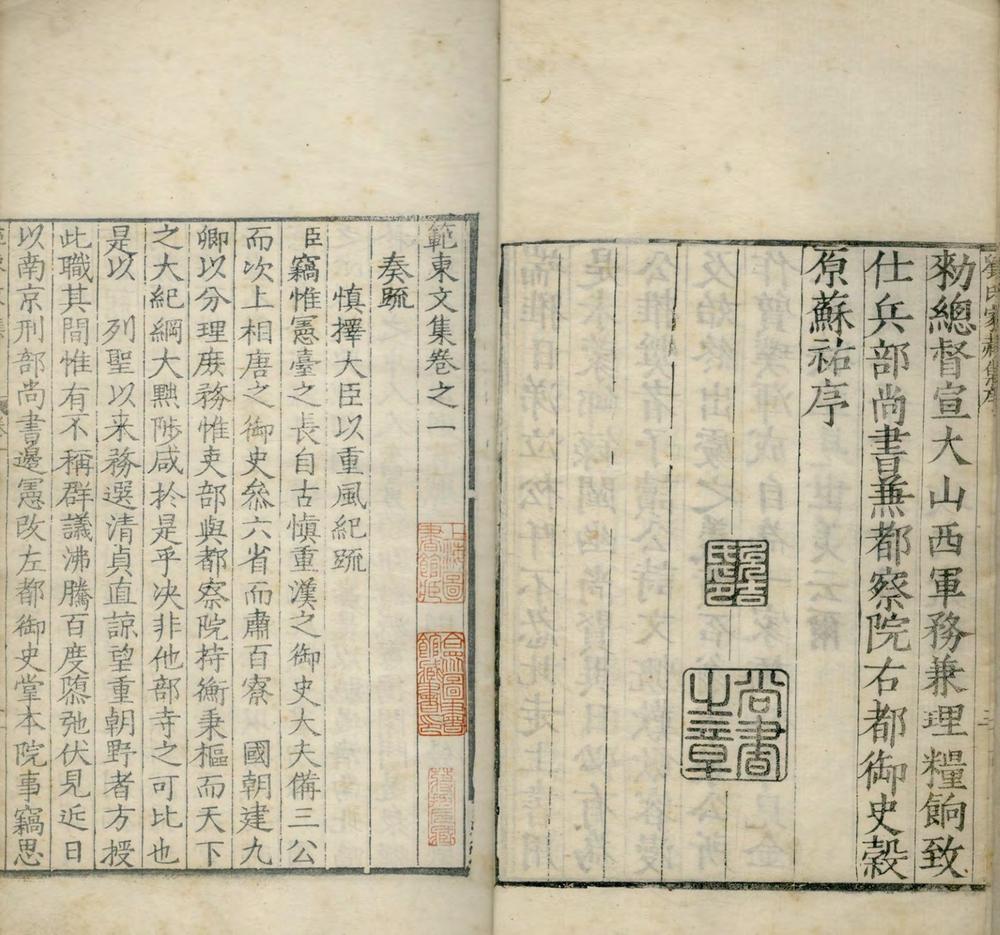 勑總督宣大山西軍務兼理糧餉致
仕兵部尚書兼都察院右都御史榖
原蘇祐序
尚書之章
範東文集卷之一
奏疏
慎擇大臣以重風紀疏
臣竊惟憲臺之長自古慎重漢之御史大夫備三公
而次上相唐之御史叅六省而肅百寮 國朝建九
卿以分理庶務惟吏部與都察院持衡秉樞而天下
之大紀綱大黜陟咸於是乎决非他部寺之可比也
是以 列聖以来務選清貞直諒望重朝野者方授
此職其間惟有不稱群議沸騰百度隳弛伏見近日
以南京刑部尚書邊憲改左都御史掌本院事竊思